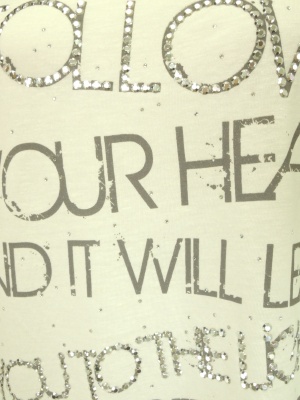 OLLOW
YOUR HEA
ND IT WILL LE
YOU TO THE LIG